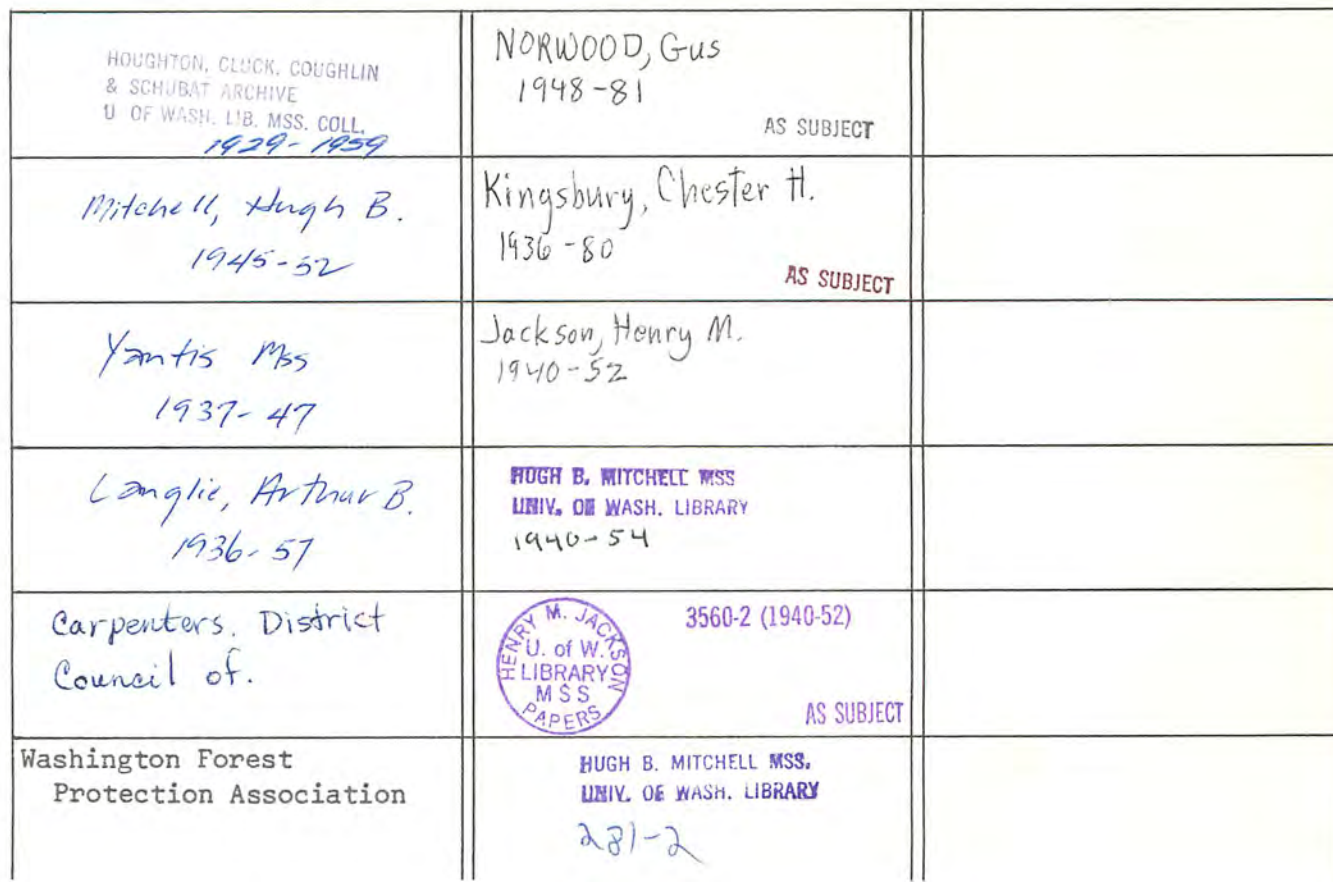 HOUGHTON, CLUCK, COUGHLIN
& SCHUBAT ARCHIVE
U OF WASH. LIB. MSS. COLL.
1929-1959
Mitchell, Hugh B.
1945-52
Yantis Mss
1937-47
Langlie, Arthur B.
1936-57
Carpenters. District
Council of.
Washington Forest
Protection Association
NORWOOD, Gus
1948-81
AS SUBJECT
Kingsbury, Chester H.
1936-80
AS SUBJECT
Jackson, Henry M.
1940-52
HUGH B. MITCHELL MSS
UNIV. OF WASH. LIBRARY
1940-54
HENRY M. JACKSON
U. of W.
LIBRARY
MSS
PAPERS
3560-2 (1940-52)
AS SUBJECT
HUGH B. MITCHELL MSS.
UNIV. OF WASH. LIBRARY
281-2